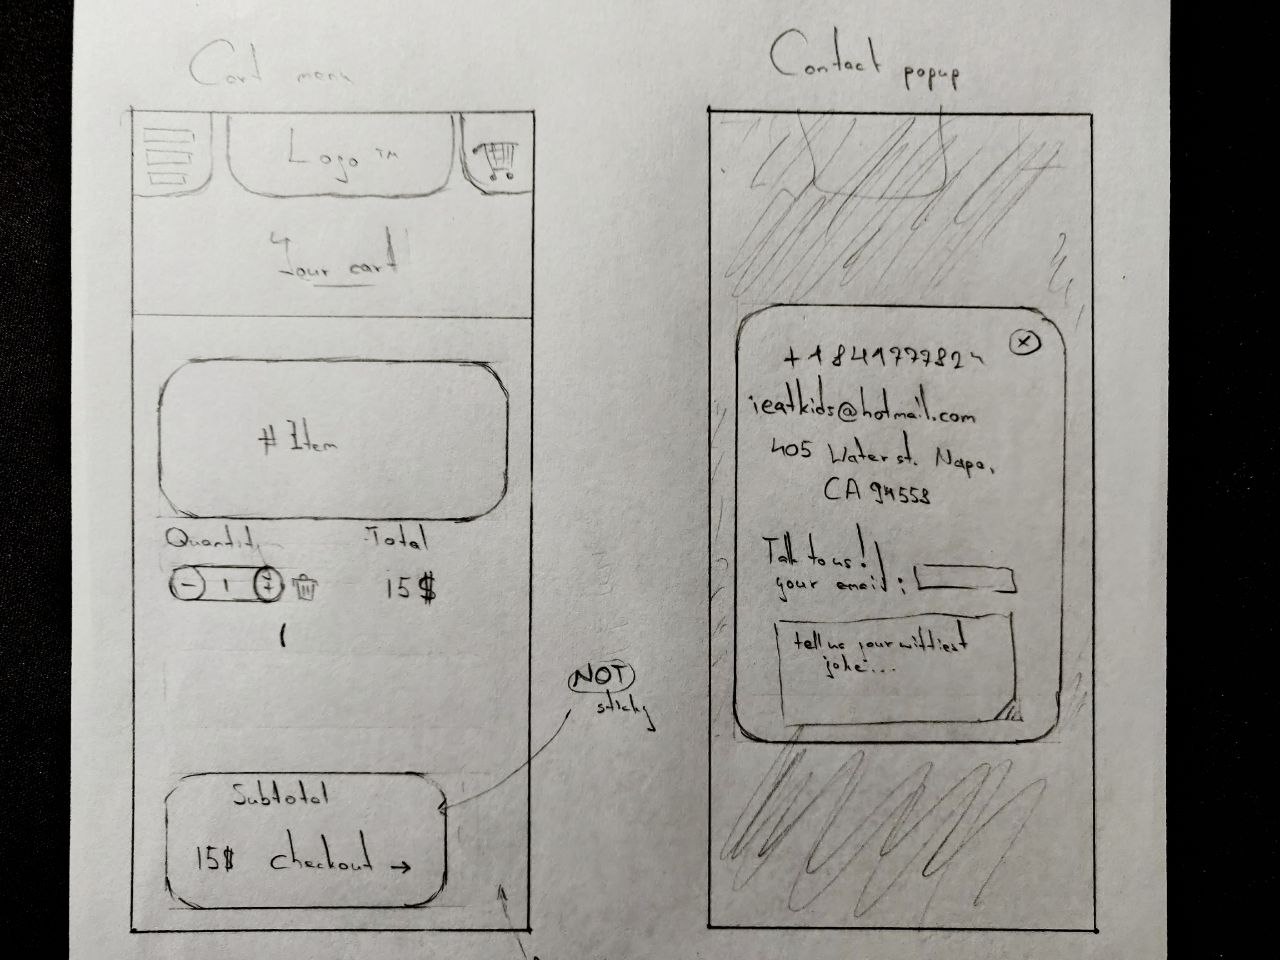 Cart menu
Logo™
Your cart
# Item
Quantity Total
- 1 + 15$
NOT
sticky
Subtotal
15$ checkout →
Contact popup
x
ieatkids@hotmail.com
405 Water st. Napa,
CA 94558
Talk to us!
your email:
tell us your wittiest
joke...